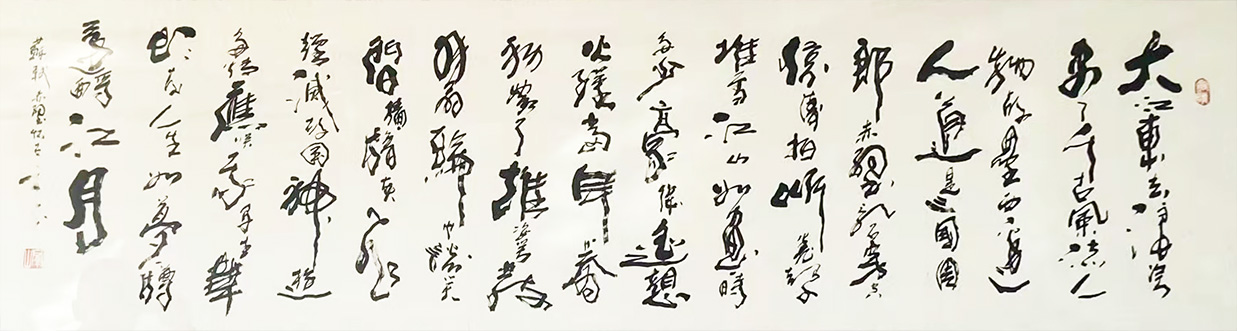 大江東去浪淘尽
千古風流人
物故壘西邊
人道是三國周
郎赤壁乱石穿空
驚濤拍岸卷起千
堆雪江山如画一時
多少豪傑遥想
公瑾當年小喬
初嫁了雄姿英發
羽扇綸巾談笑
間檣櫓灰飛
煙滅故國神遊
多情應笑我早生華
髮人生如夢一樽
還酹江月
蘇軾赤壁懷古